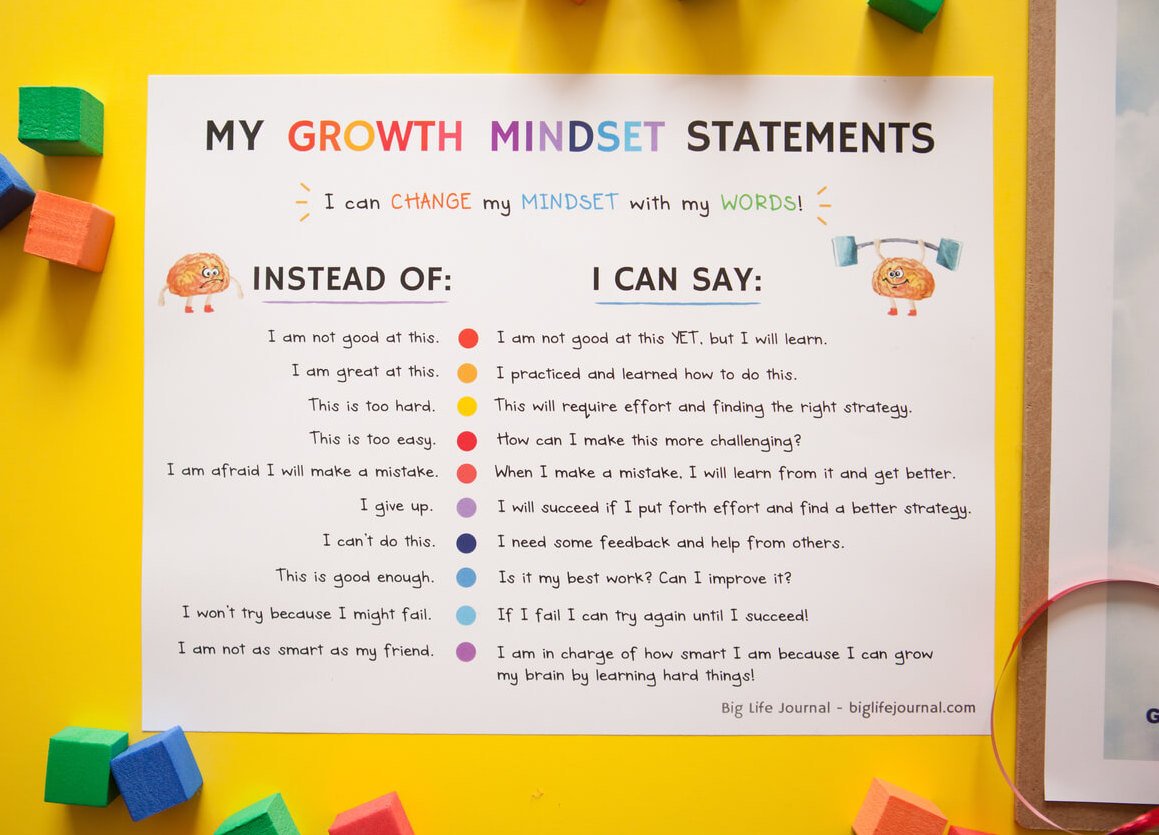 MY GROWTH MINDSET STATEMENTS
I can CHANGE my MINDSET with my WORDS!
INSTEAD OF: I CAN SAY:
I am not good at this. I am not good at this YET, but I will learn.
I am great at this. I practiced and learned how to do this.
This is too hard. This will require effort and finding the right strategy.
This is too easy. How can I make this more challenging?
I am afraid I will make a mistake. When I make a mistake, I will learn from it and get better.
I give up. I will succeed if I put forth effort and find a better strategy.
I can't do this. I need some feedback and help from others.
This is good enough. Is it my best work? Can I improve it?
I won't try because I might fail. If I fail I can try again until I succeed!
I am not as smart as my friend. I am in charge of how smart I am because I can grow
my brain by learning hard things!
Big Life Journal - biglifejournal.com
G